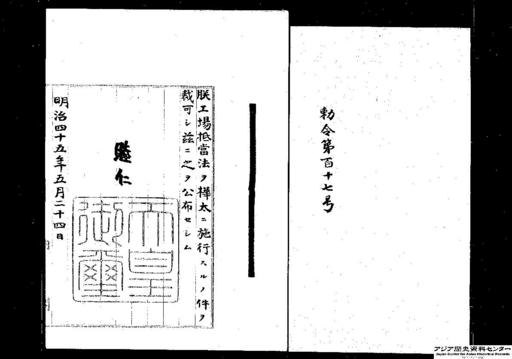 勅令第百十七号
朕工場抵當法ヲ樺太ニ施行スルノ件ヲ
裁可シ茲ニ之ヲ公布セシム
睦仁
天皇
御璽
明治四十五年五月二十四日
アジア歴史資料センター
Japan Center for Asian Historical Records